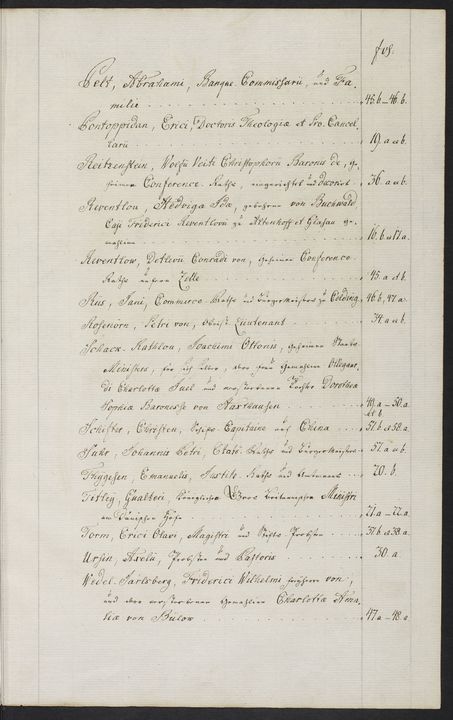 fos.
Pelt, Abrahami, Banque-Commissarii, und Fa-
milie . . . 45. b – 46. b.
Pontoppidan, Erici, Doctoris Theologiæ et Pro-Cancel-
larii . . . 19. a et b.
Reitzenstein, Wolfü Veiti Christophori Baronis de, ge-
heimen Conference-Raths, und . . . 36. a et b.
Reventlou, Hedviga Ida, gebohrne von Buchwald
Caji Friderici Reventlovii zu Altenhoff et Glasau Ge-
mahlin . . . 16. b. et 17. a.
Reventlow, Detlevü Conradi von, geheimen Conference-
Raths und Zelle . . . 45. a et b.
Riis, Jani, Commerce-Raths und Bürgermeisters zu Colding, 46 b, 47. a.
Rosenörn, Petri von, Obrist-Lieutenant . . . 34. a et b.
Schack-Rathlou, Joachimi Ottonis, geheimen Staats-
Ministers, für sich selber, und Gemahlin Ollegaar-
di Charlottæ Juel und verstorbenen Tochter Dorothea
Sophia Baronesse von Haxthausen . . . 49. a – 50. a.
et b
Schifter, Christen, Schiffs-Capitaine auf China . . . 57. b et 58. a.
Suhr, Johannis Petri, Etats-Raths und Bürgermeisters . . 57. a et b.
Thygesen, Emanuelis, Justits-Raths und Amtmans . . . 20. b.
Titley, Gualteri, königlichen Gros-Britannischen Ministri
am Dänischen Hofe . . . 21. a – 22. a.
Torm, Erici Olavi, Magistri und Stifts-Probsten . . . 37. b et 38. a.
Ursin, Axelii, Probsten und Pastoris . . . 30. a.
Wedel-Jarlsberg, Friderici Wilhelmi Freyherr von,
und der verstorbenen Gemahlin Charlottæ Ama-
liæ von Bülow . . . 47. a – 48. a.